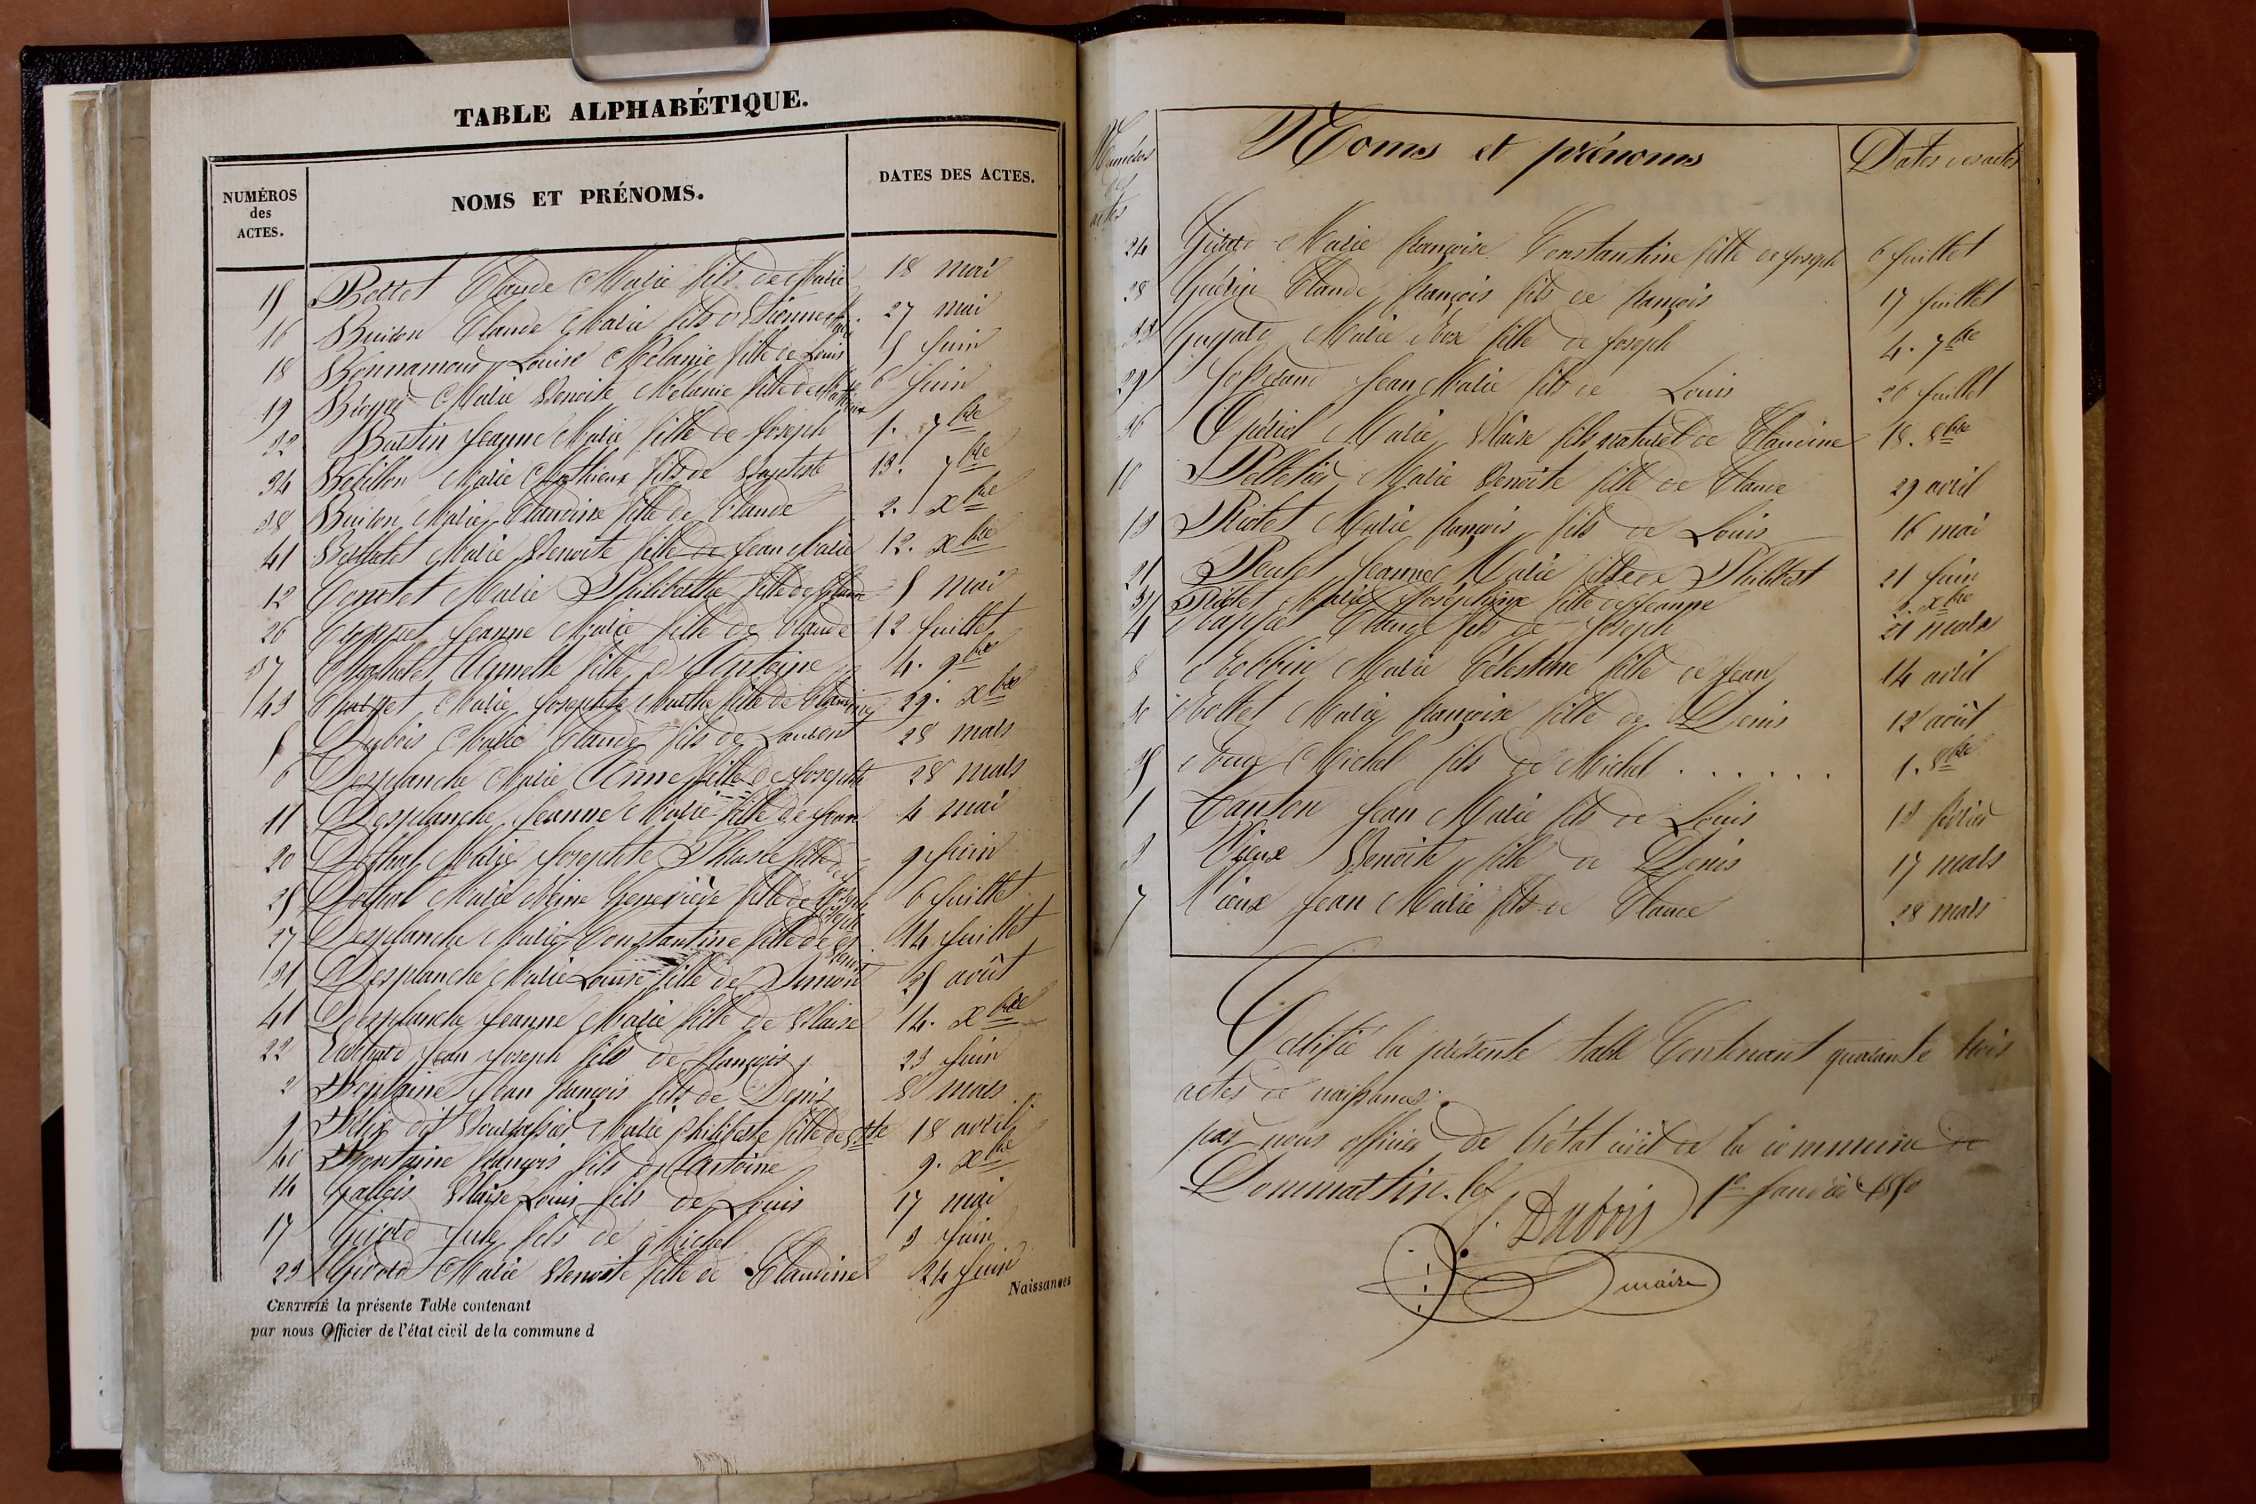 TABLE ALPHABÉTIQUE.
NUMÉROS des ACTES. NOMS ET PRÉNOMS. DATES DES ACTES.
15 Bottet Claude Marie fils de Marie 18 mai
16 Buiron Claude Marie fils d'Etienne 27 mai
18 Bonnamour Louise Mélanie fille de Louis 5 Juin
19 Marie Benoite Mélanie fille de Mathieux 6 Juin
32 Burtin Jeanne Marie fille de Joseph 1. 7bre
34 Rebillon Marie Mathieux fils de Baptiste 13. 7bre
38 Buiron Marie Claudine fille de Claude 2. Xbre
41 Marie Benoite fille de Jean Marie 12. Xbre
12 Marie Philiberthe fille de Claude 5 mai
26 Jeanne Marie fille de Claude 12 Juillet
37 Annette fille d'Antoine 4. 9bre
43 Marie Josephte Marthe fille de 29. Xbre
5 Dubois Marie Claude fils de Laurent 28 mars
6 Desplanche Marie Anne fille de Josephte 28 mars
11 Desplanche Jeanne Marie fille de Jean 4 mai
20 Marie Josephte fille de 9 Juin
25 Marie Reine Geneviève fille de Joseph 6 Juillet
27 Desplanche Marie Constantine fille de 14 Juillet
31 Desplanche Marie Louise fille de Simon 25 août
41 Desplanche Jeanne Marie fille de Blaise 14. Xbre
22 Jean Joseph fils de françois 23 Juin
2 Fontaine Jean françois fils de Denis 8 mars
9 Félix dit Marie Philiberte fille de 18 avril
40 Fontaine françois fils d'Antoine 9. Xbre
14 Blaise Louis fils de Louis 17 mai
17 Girard fils de Michel 3 Juin
23 Girard Marie Benoite fille de Claudine 24 Juin
Naissances
CERTIFIÉ la présente Table contenant
par nous Officier de l'état civil de la commune d
Numéros des actes Noms et prénoms Dates des actes
24 Girard Marie françoise Constantine fille de Joseph 6 Juillet
28 Guérin Claude françois fils de françois 17 Juillet
33 Marie Rose fille de Joseph 4. 7bre
29 Josserand Jean Marie fils de Louis 26 Juillet
36 Marie Blaise fils naturel de Claudine 18. 8bre
10 Pelletier Marie Benoite fille de Claude 29 avril
13 Marie françois fils de Louis 16 mai
21 Jeanne Marie fille de Philibert 21 Juin
39 Marie Josephine fille de Jeanne 2. Xbre
4 Claude fils de Joseph 21 mars
8 Robbin Marie Célestine fille de Jean 14 avril
30 Rollet Marie françoise fille de Denis 12 août
35 Michel fils de Michel . . . . . . 1. 8bre
1 Jean Marie fils de Louis 13 février
3 Vieux Benoite fille de Denis 17 mars
7 Vieux Jean Marie fils de Claude 28 mars
Certifié la présente table Contenant quarante trois
actes de naissances.
par nous officier de l'état civil de la commune de
Dommartin. le 1er Janvier 1850
C. Dubois
maire